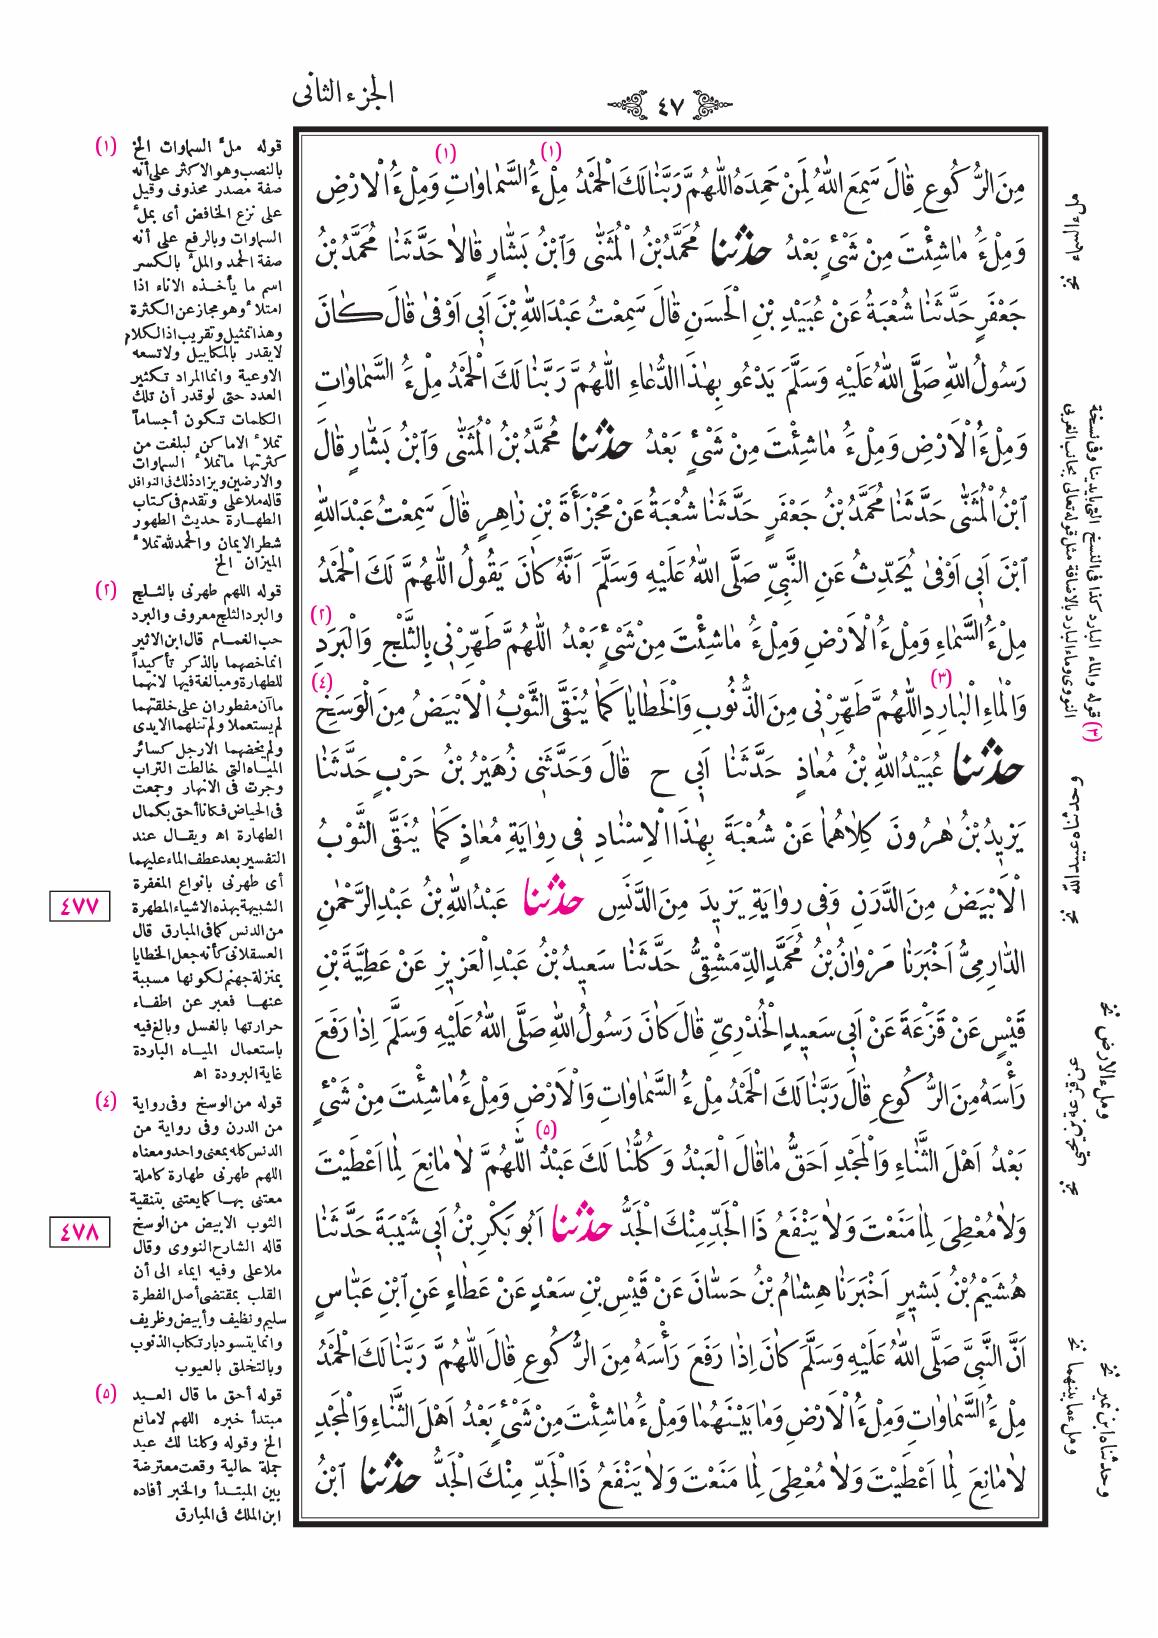 الجزء الثانى
٤٧
مِنَ الرُّكُوعِ قَالَ سَمِعَ اللّٰهُ لِمَنْ حَمِدَهُ اللّٰهُمَّ رَبَّنَا لَكَ الْحَمْدُ (١) مِلْءُ السَّمَاوَاتِ (١) وَمِلْءُ الْاَرْضِ
وَمِلْءُ مَا شِئْتَ مِنْ شَىْءٍ بَعْدُ حدثنا مُحَمَّدُ بْنُ الْمُثَنّٰى وَابْنُ بَشَّارٍ قَالَا حَدَّثَنَا مُحَمَّدُ بْنُ
جَعْفَرٍ حَدَّثَنَا شُعْبَةُ عَنْ عُبَيْدِ بْنِ الْحَسَنِ قَالَ سَمِعْتُ عَبْدَ اللّٰهِ بْنَ اَبِى اَوْفٰى قَالَ كَانَ
رَسُولُ اللّٰهِ صَلَّى اللّٰهُ عَلَيْهِ وَسَلَّمَ يَدْعُو بِهٰذَا الدُّعَاءِ اللّٰهُمَّ رَبَّنَا لَكَ الْحَمْدُ مِلْءُ السَّمَاوَاتِ
وَمِلْءُ الْاَرْضِ وَمِلْءُ مَا شِئْتَ مِنْ شَىْءٍ بَعْدُ حدثنا مُحَمَّدُ بْنُ الْمُثَنّٰى وَابْنُ بَشَّارٍ قَالَ
ابْنُ الْمُثَنّٰى حَدَّثَنَا مُحَمَّدُ بْنُ جَعْفَرٍ حَدَّثَنَا شُعْبَةُ عَنْ مَجْزَأَةَ بْنِ زَاهِرٍ قَالَ سَمِعْتُ عَبْدَ اللّٰهِ
ابْنَ اَبِى اَوْفٰى يُحَدِّثُ عَنِ النَّبِىِّ صَلَّى اللّٰهُ عَلَيْهِ وَسَلَّمَ اَنَّهُ كَانَ يَقُولُ اللّٰهُمَّ لَكَ الْحَمْدُ
مِلْءُ السَّمَاءِ وَمِلْءُ الْاَرْضِ وَمِلْءُ مَا شِئْتَ مِنْ شَىْءٍ بَعْدُ اللّٰهُمَّ طَهِّرْنِى بِالثَّلْجِ وَالْبَرَدِ (٢)
وَالْمَاءِ الْبَارِدِ (٣) اللّٰهُمَّ طَهِّرْنِى مِنَ الذُّنُوبِ وَالْخَطَايَا كَمَا يُنَقَّى الثَّوْبُ الْاَبْيَضُ مِنَ الْوَسَخِ (٤)
حدثنا عُبَيْدُ اللّٰهِ بْنُ مُعَاذٍ حَدَّثَنَا اَبِى ح قَالَ وَحَدَّثَنِى زُهَيْرُ بْنُ حَرْبٍ حَدَّثَنَا
يَزِيدُ بْنُ هٰرُونَ كِلَاهُمَا عَنْ شُعْبَةَ بِهٰذَا الْاِسْنَادِ فِى رِوَايَةِ مُعَاذٍ كَمَا يُنَقَّى الثَّوْبُ
الْاَبْيَضُ مِنَ الدَّرَنِ وَفِى رِوَايَةِ يَزِيدَ مِنَ الدَّنَسِ حدثنا عَبْدُ اللّٰهِ بْنُ عَبْدِ الرَّحْمٰنِ
الدَّارِمِىُّ اَخْبَرَنَا مَرْوَانُ بْنُ مُحَمَّدٍ الدِّمَشْقِىُّ حَدَّثَنَا سَعِيدُ بْنُ عَبْدِ الْعَزِيزِ عَنْ عَطِيَّةَ بْنِ
قَيْسٍ عَنْ قَزْعَةَ عَنْ اَبِى سَعِيدٍ الْخُدْرِىِّ قَالَ كَانَ رَسُولُ اللّٰهِ صَلَّى اللّٰهُ عَلَيْهِ وَسَلَّمَ اِذَا رَفَعَ
رَأْسَهُ مِنَ الرُّكُوعِ قَالَ رَبَّنَا لَكَ الْحَمْدُ مِلْءُ السَّمَاوَاتِ وَالْاَرْضِ وَمِلْءُ مَا شِئْتَ مِنْ شَىْءٍ
بَعْدُ اَهْلَ الثَّنَاءِ وَالْمَجْدِ اَحَقُّ مَا قَالَ الْعَبْدُ وَكُلُّنَا لَكَ عَبْدٌ (٥) اللّٰهُمَّ لَا مَانِعَ لِمَا اَعْطَيْتَ
وَلَا مُعْطِىَ لِمَا مَنَعْتَ وَلَا يَنْفَعُ ذَا الْجَدِّ مِنْكَ الْجَدُّ حدثنا اَبُو بَكْرِ بْنُ اَبِى شَيْبَةَ حَدَّثَنَا
هُشَيْمُ بْنُ بَشِيرٍ اَخْبَرَنَا هِشَامُ بْنُ حَسَّانَ عَنْ قَيْسِ بْنِ سَعْدٍ عَنْ عَطَاءٍ عَنِ ابْنِ عَبَّاسٍ
اَنَّ النَّبِىَّ صَلَّى اللّٰهُ عَلَيْهِ وَسَلَّمَ كَانَ اِذَا رَفَعَ رَأْسَهُ مِنَ الرُّكُوعِ قَالَ اللّٰهُمَّ رَبَّنَا لَكَ الْحَمْدُ
مِلْءُ السَّمَاوَاتِ وَمِلْءُ الْاَرْضِ وَمَا بَيْنَهُمَا وَمِلْءُ مَا شِئْتَ مِنْ شَىْءٍ بَعْدُ اَهْلَ الثَّنَاءِ وَالْمَجْدِ
لَا مَانِعَ لِمَا اَعْطَيْتَ وَلَا مُعْطِىَ لِمَا مَنَعْتَ وَلَا يَنْفَعُ ذَا الْجَدِّ مِنْكَ الْجَدُّ حدثنا ابْنُ
(١) قوله ملء السماوات الخ
بالنصب وهو الاكثر على أنه
صفة مصدر محذوف وقيل
على نزع الخافض أى بملء
السماوات وبالرفع على أنه
صفة الحمد والملء بالكسر
اسم ما يأخذه الاناء اذا
امتلأ وهو مجاز عن الكثرة
وهذا تمثيل وتقريب اذ الكلام
لا يقدر بالمكاييل ولا تسعه
الاوعية وانما المراد تكثير
العدد حتى لو قدر أن تلك
الكلمات تكون أجساماً
تملأ الاماكن لبلغت من
كثرتها ما تملأ السماوات
والارضين ويزاد ذلك فى النوافل
قاله ملا على وتقدم فى كتاب
الطهارة حديث الطهور
شطر الايمان والحمد لله تملأ
الميزان الخ
(٢) قوله اللهم طهرنى بالثلج
والبرد الثلج معروف والبرد
حب الغمام قال ابن الاثير
انما خصهما بالذكر تأكيداً
للطهارة ومبالغة فيها لانهما
ماآن مفطوران على خلقتهما
لم يستعملا ولم تنلهما الايدى
ولم يخضهما الارجل كسائر
المياه التى خالطت التراب
وجرت فى الانهار وجمعت
فى الحياض فكانا أحق بكمال
الطهارة اه ويقال عند
التفسير بعد عطف الماء عليهما
أى طهرنى بانواع المغفرة
الشبيهة بهذه الاشياء المطهرة
من الدنس كما فى المبارق قال
العسقلانى كأنه جعل الخطايا
بمنزلة جهنم لكونها مسببة
عنها فعبر عن اطفاء
حرارتها بالغسل وبالغ فيه
باستعمال المياه الباردة
غاية البرودة اه
(٤) قوله من الوسخ وفى رواية
من الدرن وفى رواية من
الدنس كله بمعنى واحد ومعناه
اللهم طهرنى طهارة كاملة
معتنى بها كما يعتنى بتنقية
الثوب الابيض من الوسخ
قاله الشارح النووى وقال
ملا على وفيه ايماء الى أن
القلب بمقتضى أصل الفطرة
سليم ونظيف وأبيض وظريف
وانما يتسود بارتكاب الذنوب
وبالتخلق بالعيوب
(٥) قوله أحق ما قال العبد
مبتدأ خبره اللهم لا مانع
الخ وقوله وكلنا لك عبد
جملة حالية وقعت معترضة
بين المبتدأ والخبر أفاده
ابن الملك فى المبارق
٤٧٧
٤٧٨
ملء السماء نخ
(٣) قوله والماء البارد كذا فى النسخ التى بايدينا وفى نسخة
النووى وماء البارد بالاضافة مثل قوله تعالى بجانب الغربى
وحدثناه عبيد الله نخ
وملء الارض نخ
عن قزعة بن يحيى نخ
وملء ما بينهما نخ
وحدثناه ابن نمير نخ